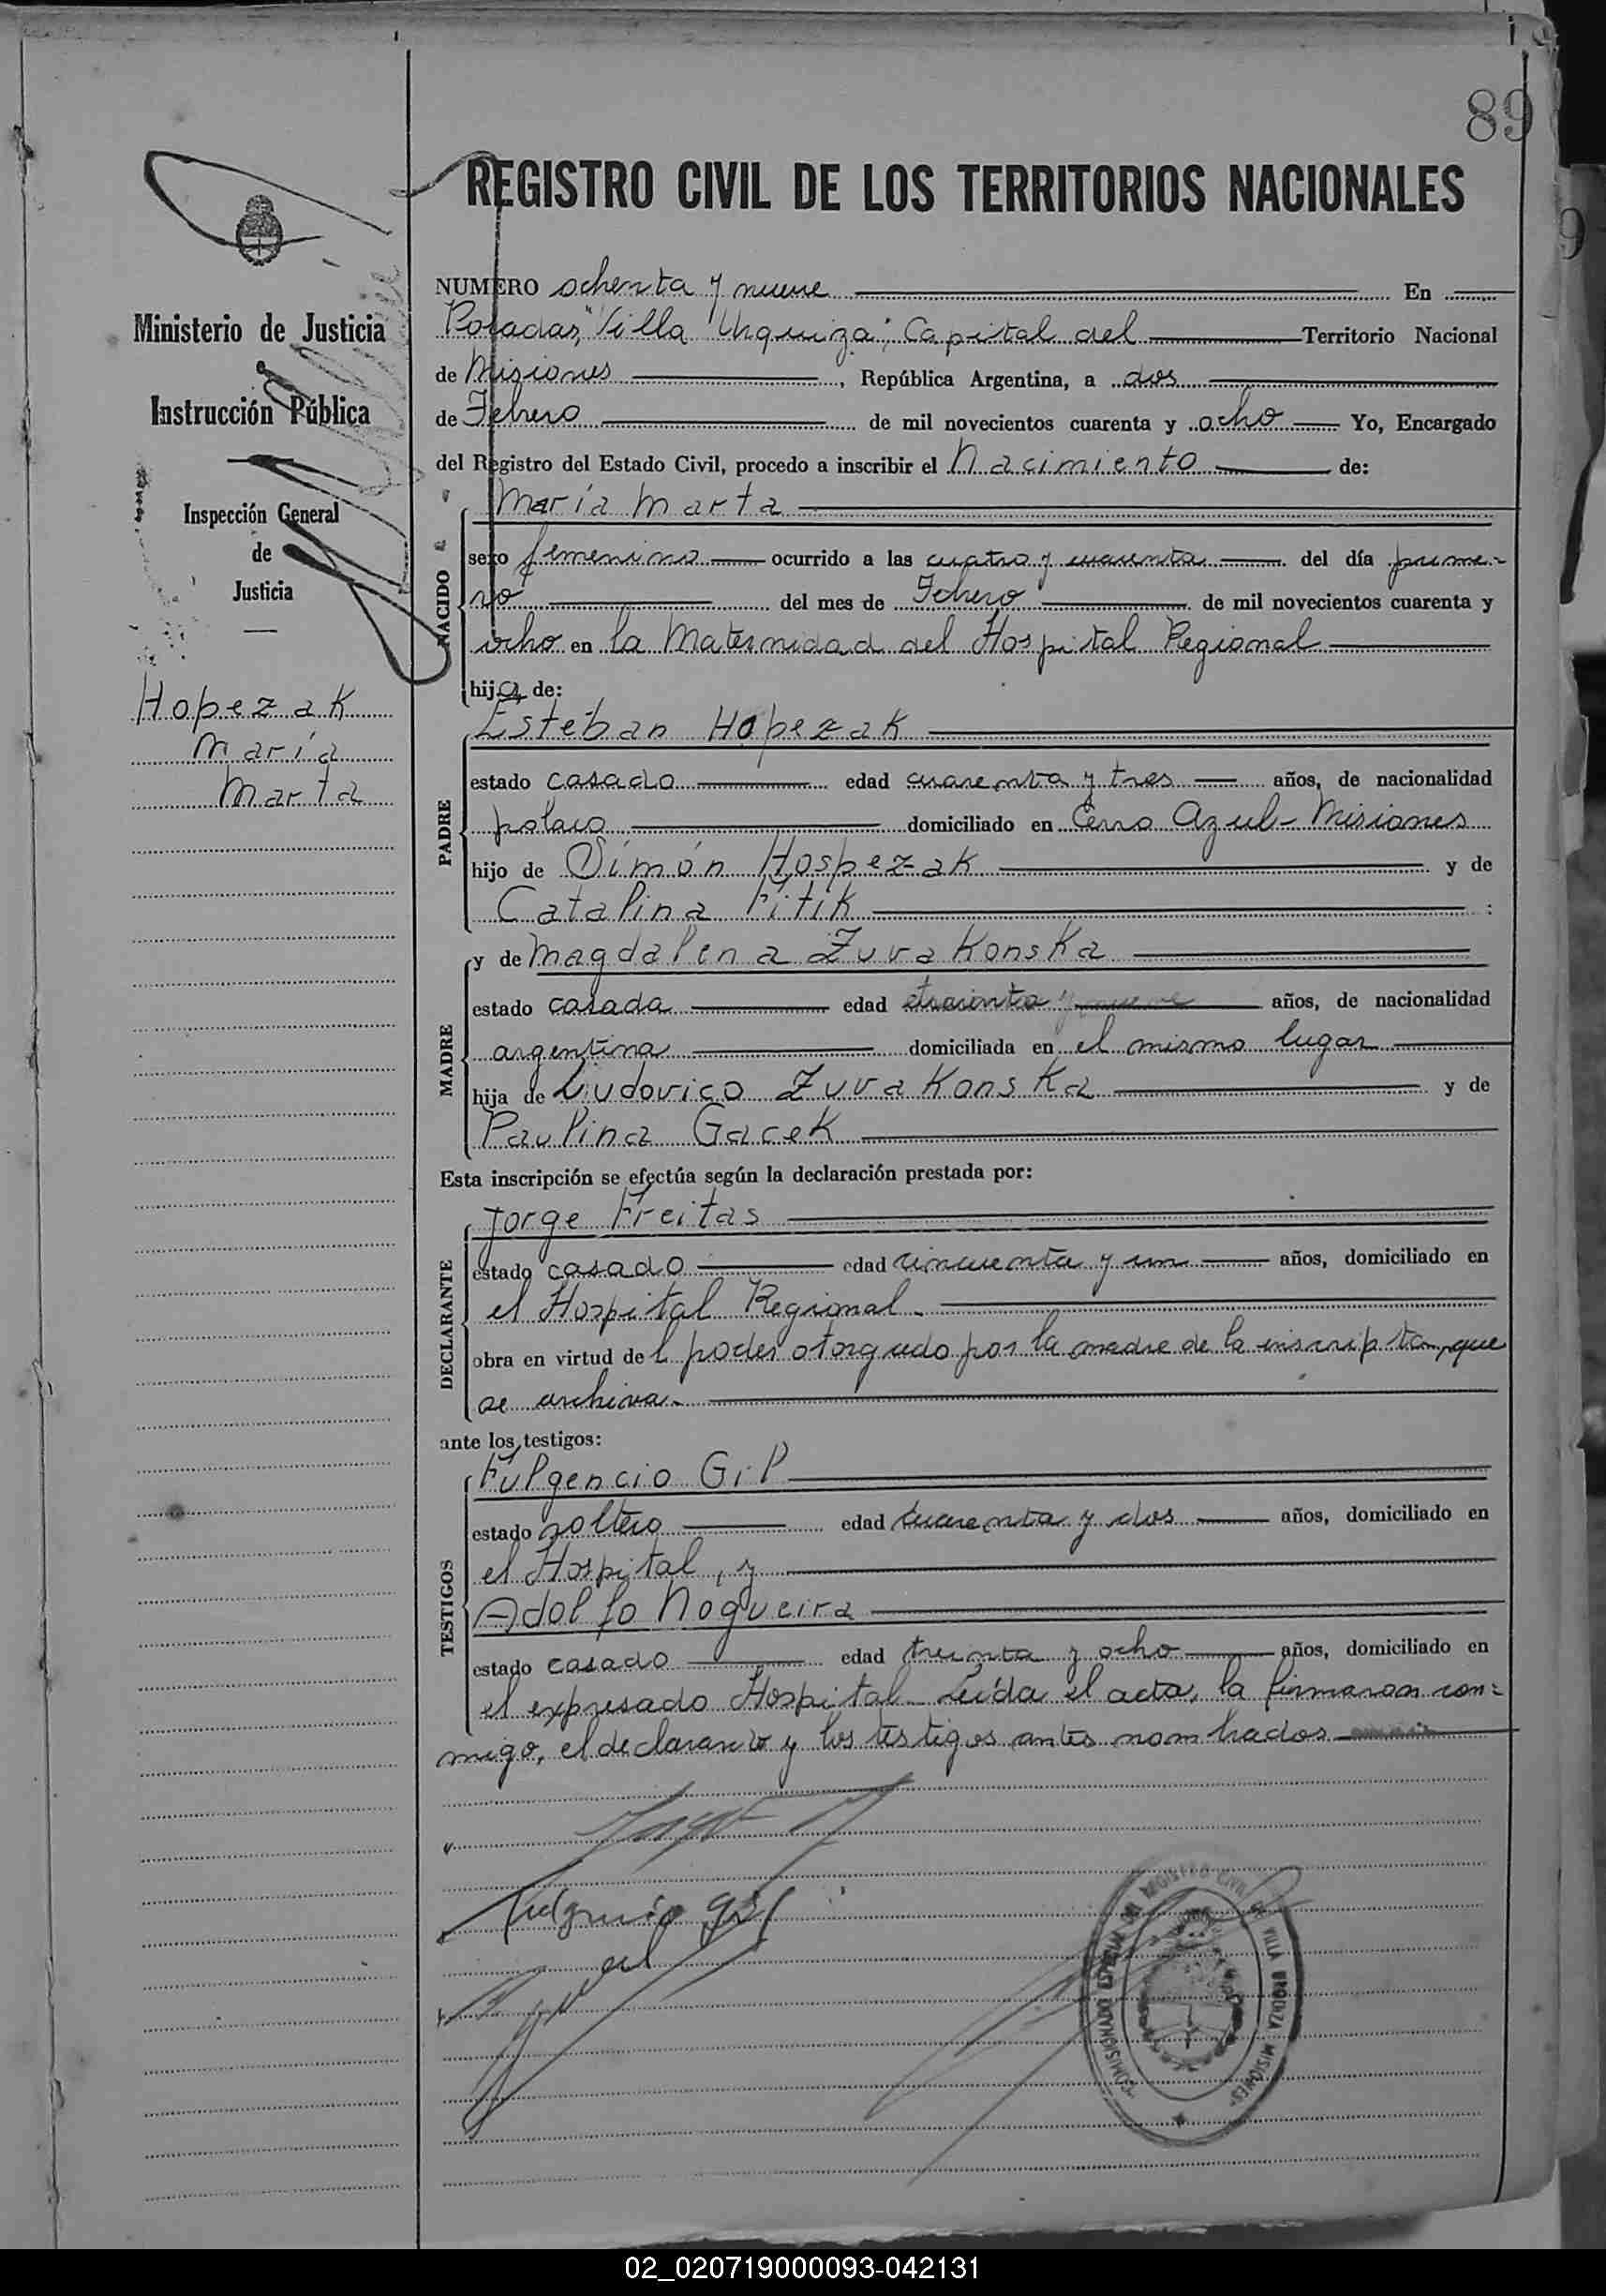 89
REGISTRO CIVIL DE LOS TERRITORIOS NACIONALES
Ministerio de Justicia
Instrucción Pública
Inspección General
de
Justicia
Hopezak
María
Marta
NUMERO ochenta y nueve En
Posadas, "Villa Urquiza", Capital del Territorio Nacional
de Misiones, República Argentina, a dos
de Febrero de mil novecientos cuarenta y ocho Yo, Encargado
del Registro del Estado Civil, procedo a inscribir el Nacimiento de:
NACIDO
María Marta
sexo femenino ocurrido a las cuatro y cuarenta del día prime-
ro del mes de Febrero de mil novecientos cuarenta y
ocho en la Maternidad del Hospital Regional
hija de:
PADRE
Estéban Hopezak
estado casado edad cuarenta y tres años, de nacionalidad
polaco domiciliado en Cerro Azul - Misiones
hijo de Simón Hospezak y de
Catalina Fitik :
MADRE
y de Magdalena Zuvakonska
estado casada edad años, de nacionalidad
argentina domiciliada en el mismo lugar
hija de Ludovico Zuvakonska y de
Paulina Gacek
Esta inscripción se efectúa según la declaración prestada por:
DECLARANTE
Jorge Freitas
estado casado edad cincuenta y un años, domiciliado en
el Hospital Regional.
obra en virtud del poder otorgado por la madre de la inscripta, que
se archiva.
ante los testigos:
TESTIGOS
Fulgencio Gil
estado soltero edad cuarenta y dos años, domiciliado en
el Hospital, y
Adolfo Nogueira
estado casado edad treinta y ocho años, domiciliado en
el expresado Hospital. Leída el acta, la firmaron con=
migo, el declarante y los testigos antes nombrados
Fulgencio Gil
COMISIONADO ESPECIAL DEL REGISTRO CIVIL DE VILLA URQUIZA MISIONES
02_020719000093-042131